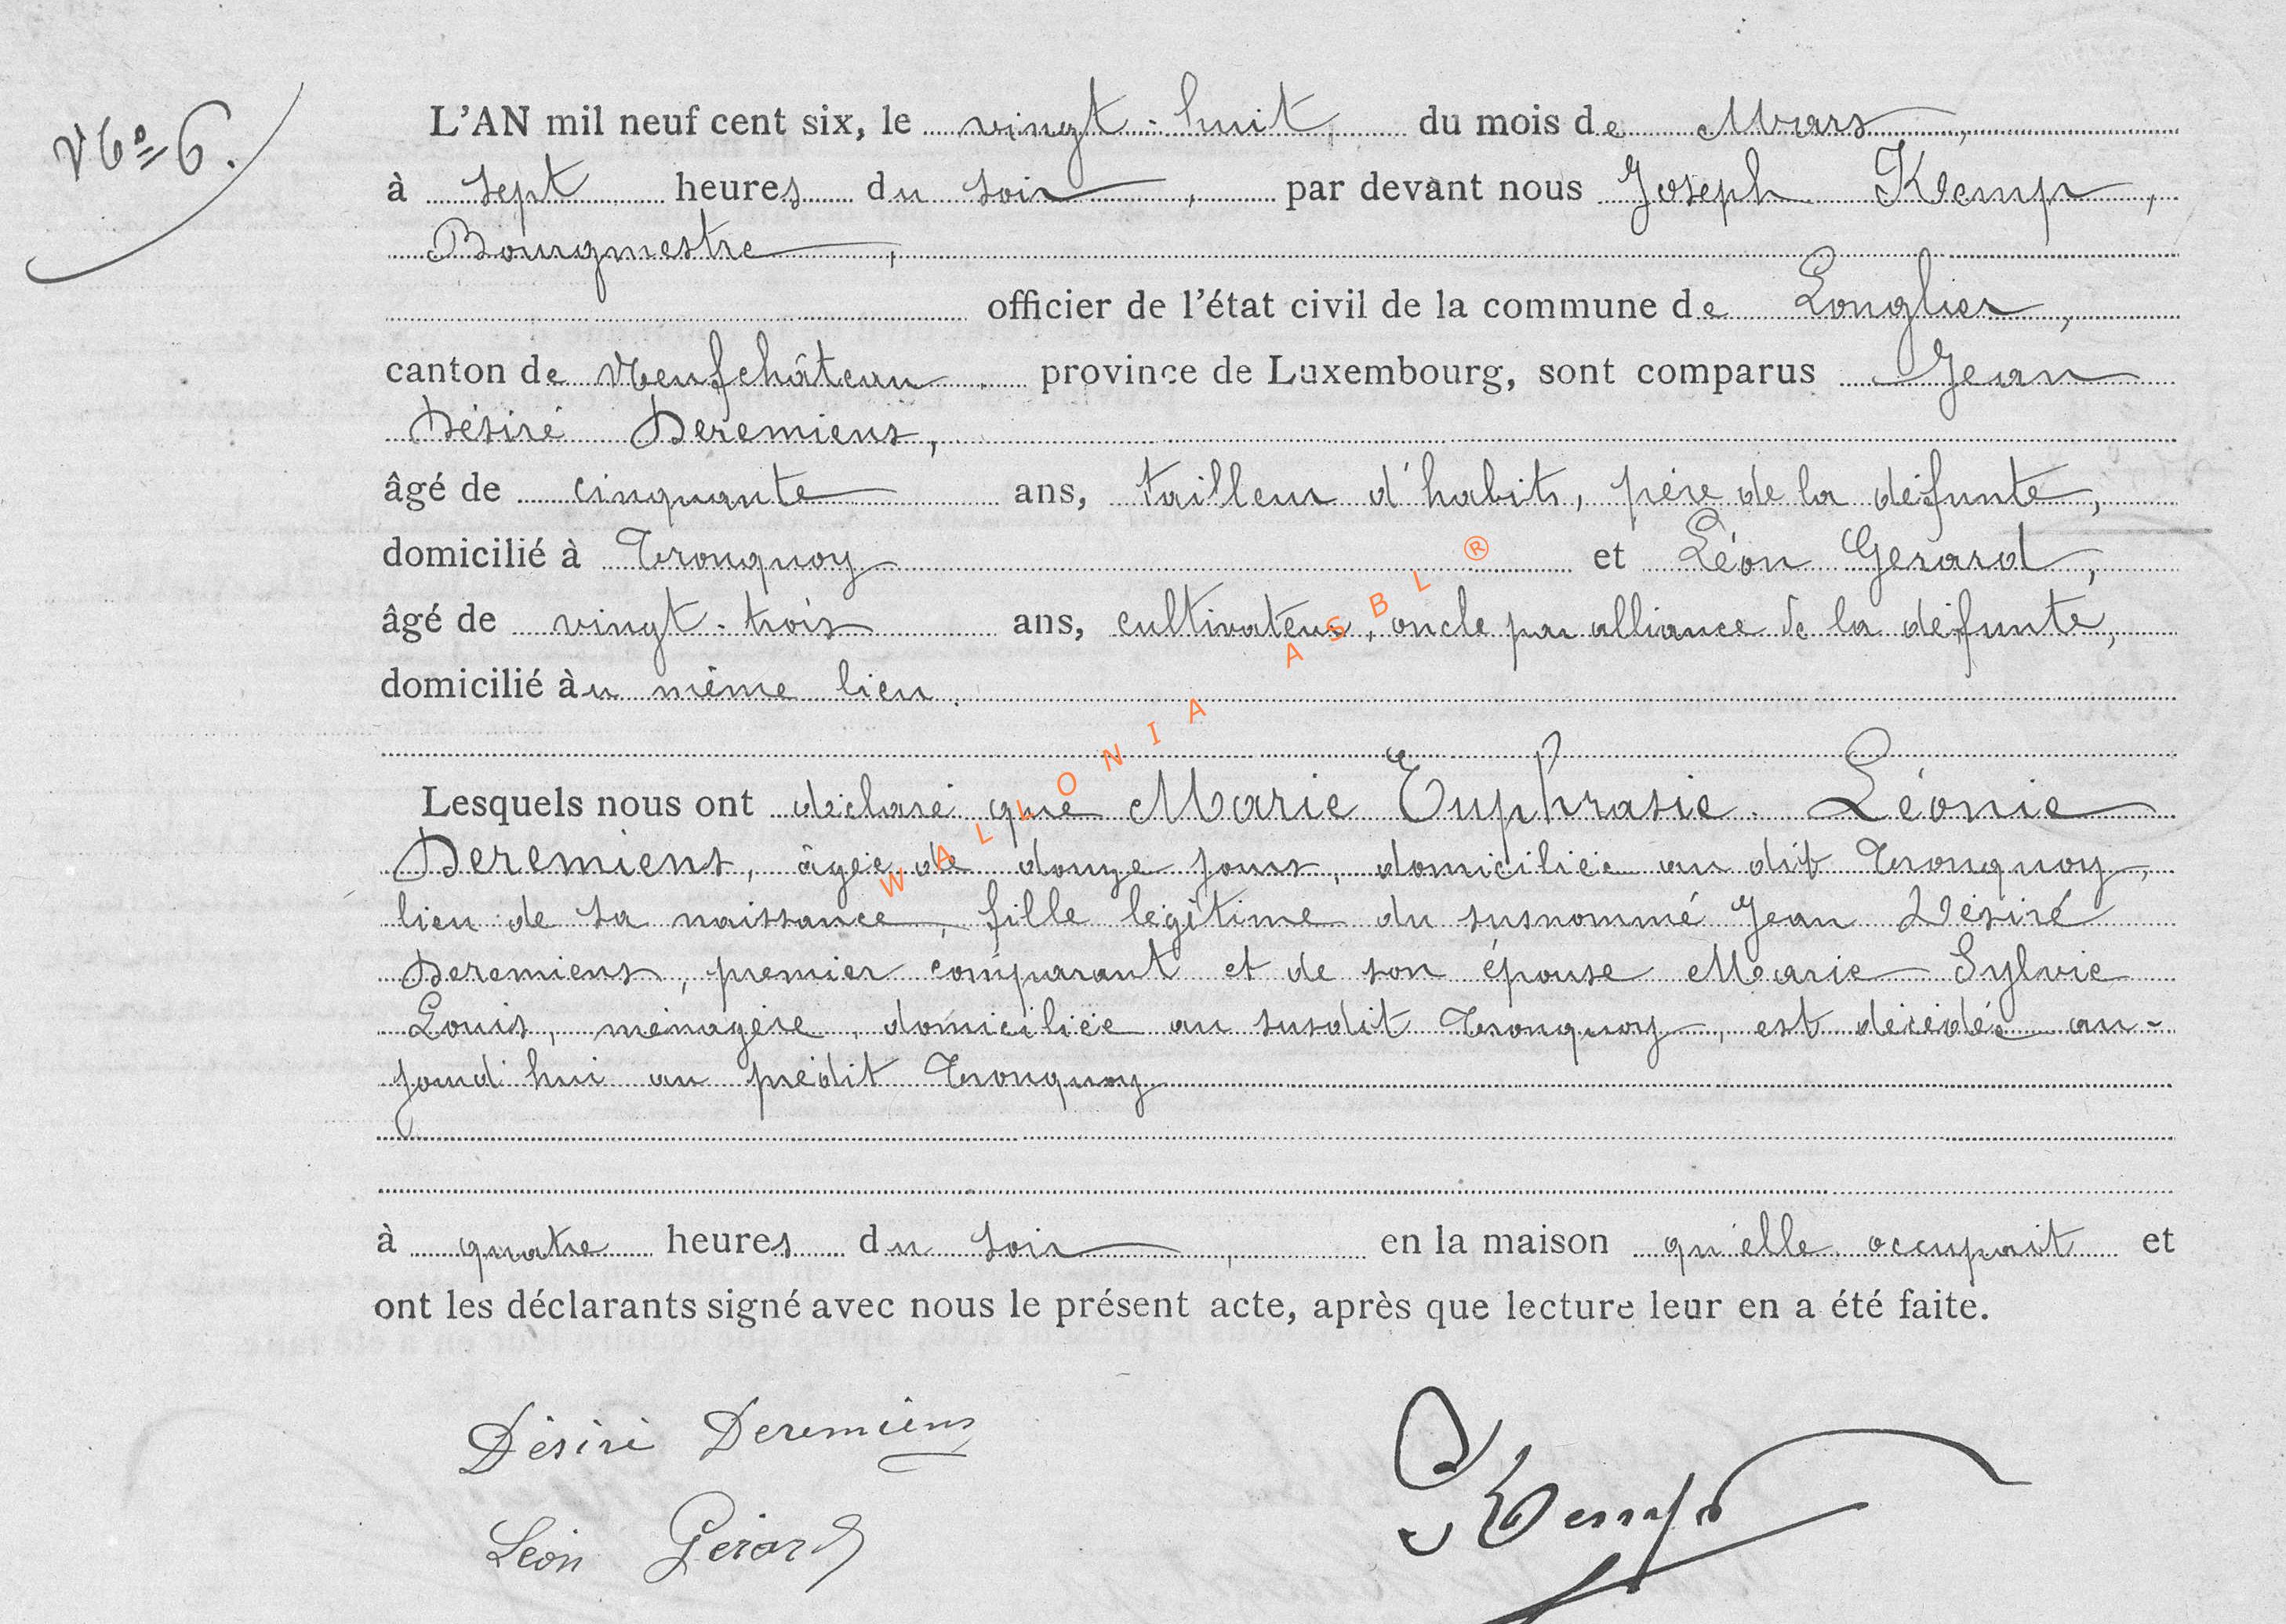 N° 6.
L'AN mil neuf cent six, le vingt-huit, du mois de Mars,
à sept heures du soir, par devant nous Joseph Kemp,
Bourgmestre,
officier de l'état civil de la commune de Longlier,
canton de Neufchâteau. province de Luxembourg, sont comparus Jean
Désiré Deremiens,
âgé de cinquante ans, tailleur d'habits, père de la défunte,
domicilié à Tronquoy et Léon Gerard,
âgé de vingt-trois ans, cultivateur, oncle par alliance de la défunte,
domicilié au même lieu.
Lesquels nous ont déclaré que Marie Euphrasie Léonie
Deremiens, âgée de douze jours, domiciliée au dit Tronquoy,
lieu de sa naissance, fille légitime du susnommé Jean Désiré
Deremiens, premier comparant et de son épouse Marie Sylvie
Louis, ménagère, domiciliée au susdit Tronquoy, est décédée au-
jourd'hui au prédit Tronquoy
à quatre heures du soir, en la maison qu'elle occupait et
ont les déclarants signé avec nous le présent acte, après que lecture leur en a été faite.
Désiré Deremiens
Léon Gérard
JKemp
WALLONIA ASBL ®